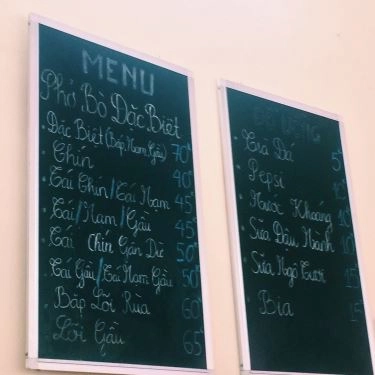 MENU
Phở Bò Đặc Biệt
Đặc Biệt (Bắp, Nạm, Gầu) 70k
Chín 40k
Tái Chín/Tái Nạm 45k
Tái/Nạm/Gầu 45k
Tái chín Gân Dẻ 50k
Tái Gầu/Tái Nạm Gầu 50k
Bắp Lõi Rùa 60k
Lõi Gầu 65k
ĐỒ UỐNG
Trà Đá 5k
Pepsi
Nước Khoáng 10k
Sữa Đậu Nành 10k
Sữa Ngô Tươi 15k
Bia 15k